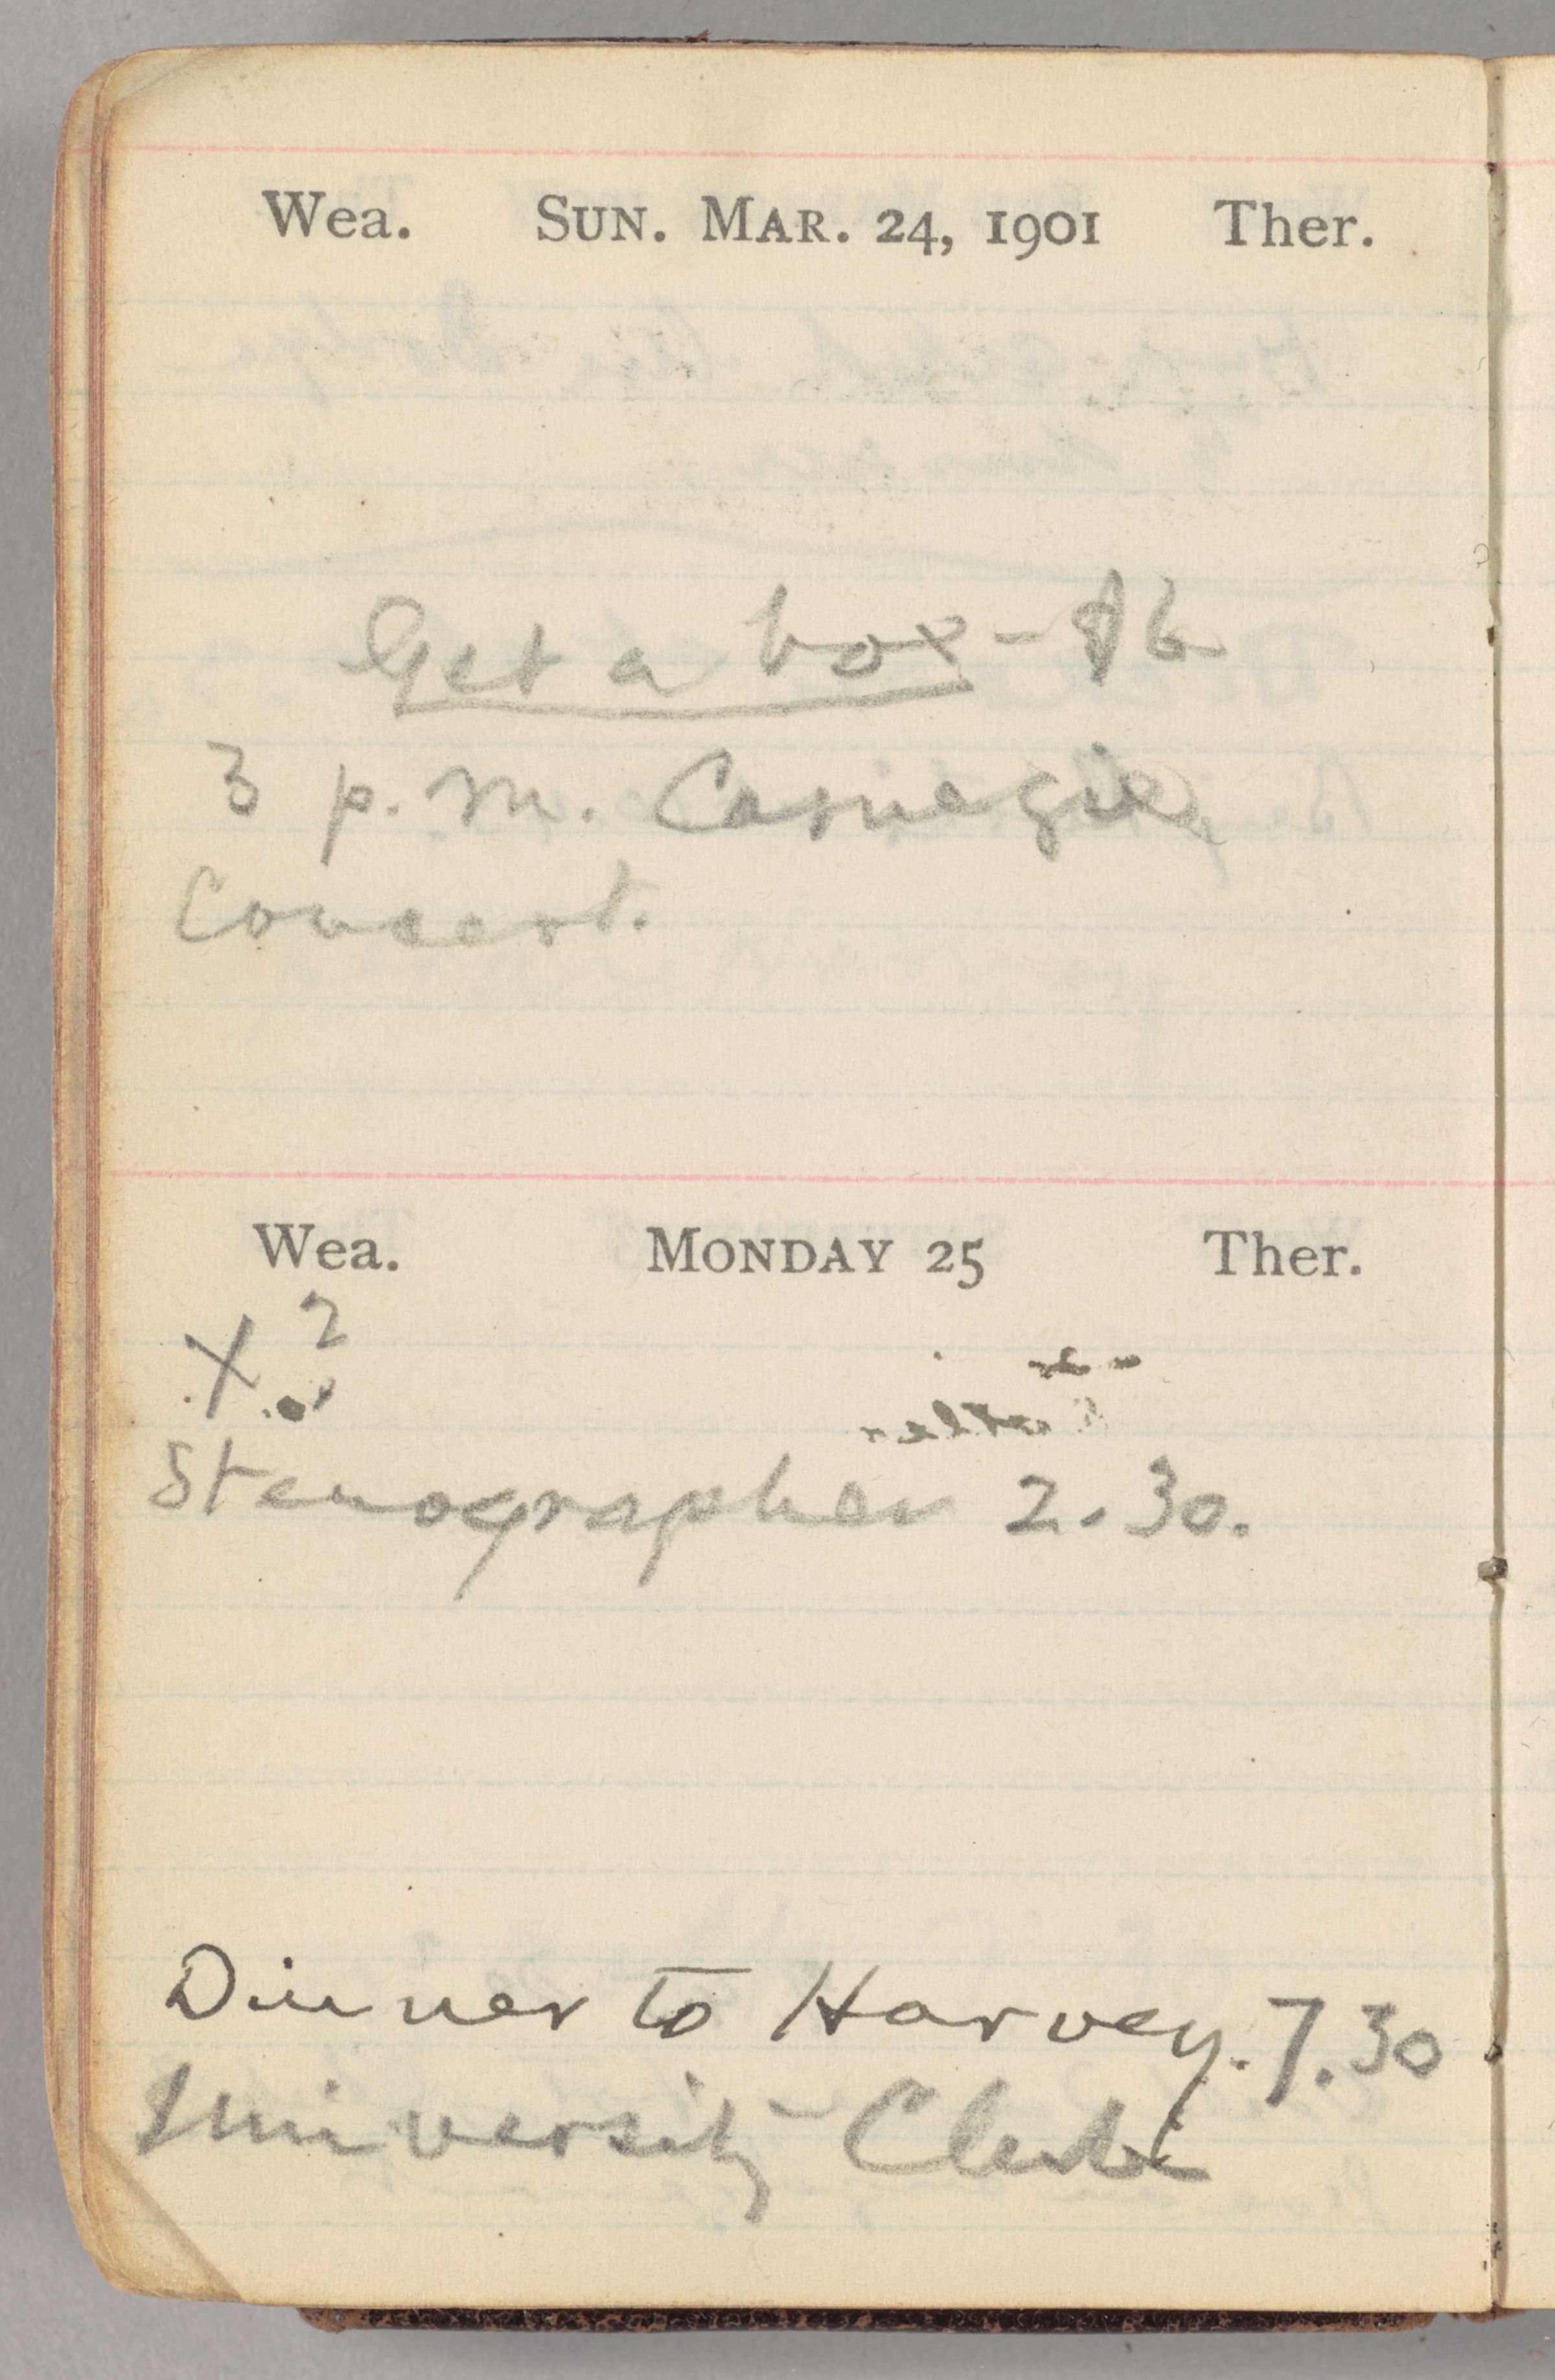 Wea. SUN. MAR. 24, 1901 Ther.
Get a box - $6
3 p. m. Carnegie
Concert.
Wea. MONDAY 25 Ther.
X 2
Stenographer 2.30.
Dinner to Harvey. 7.30
University Club